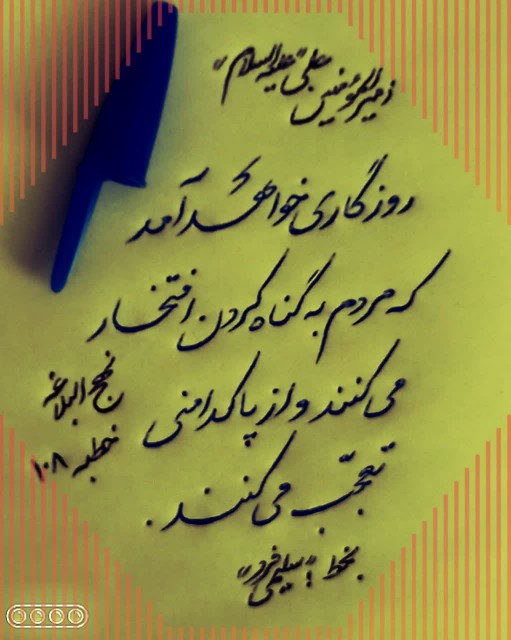 امیرالمؤمنین علی "علیه السلام"
روزگاری خواهد آمد
که مردم به گناه کردن افتخار
می کنند و از پاکدامنی
تعجّب می کنند.
نهج البلاغه
خطبه ۱۰۸
بخط: "سلیمی فرد"